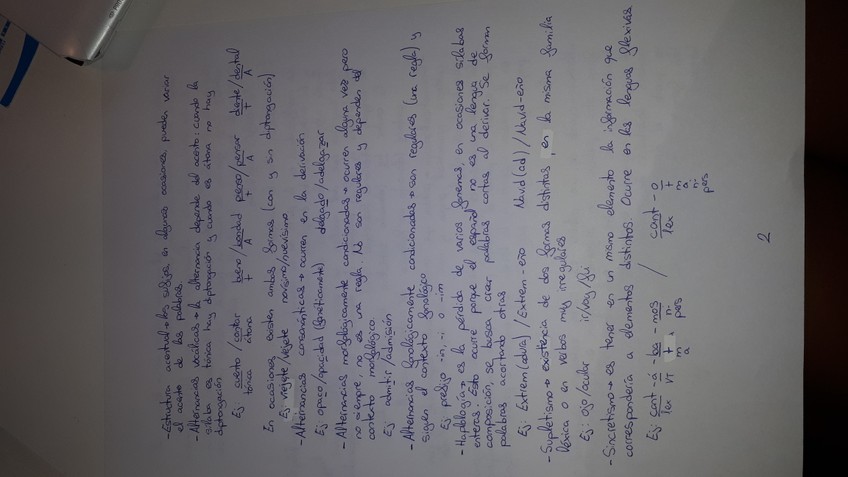 - Estructura acentual → los sufijos en algunas ocasiones pueden variar
el acento de las palabras.
- Alternancias vocálicas → la alternancia depende del acento: cuando la
sílaba es tónica hay diptongación y cuando es átona no hay
diptongación
Ej cuento/contar bueno/bondad pienso/pensar diente/dental
tónica átona T A T A T A
En ocasiones existen ambas formas (con y sin diptongación)
Ej viejete/vejete novísimo/nuevísimo
- Alternancias consonánticas → ocurren en la derivación
Ej opaco/opacidad (fonéticamente) delgado/adelgazar
- Alternancias morfológicamente condicionadas → ocurren alguna vez pero
no siempre, no es una regla. No son regulares y dependen del
contexto morfológico
Ej admitir/admisión
- Alternancias fonológicamente condicionadas → son regulares (una regla) y
siguen el contexto fonológico
Ej prefijo -in, -i o -im
- Haplología → es la pérdida de varios fonemas, en ocasiones sílabas
enteras. Esto ocurre porque el español no es una lengua de
composición, se busca crear palabras cortas al derivar. Se forman
palabras acortando otras
Ej: Extrem(adura)/Extrem-eño Navid(ad)/Navid-eño
- Supletismo → existencia de dos formas distintas, en la misma familia
léxica o en verbos muy irregulares
Ej: ojo/ocular ir/voy/fui
- Sincretismo → es tener en un mismo elemento la información que
correspondería a elementos distintos. Ocurre en las lenguas flexivas
Ej: cant-á-ba-mos / cant-o
lex VT t n lex t
m pers m
a a
n
pers
2